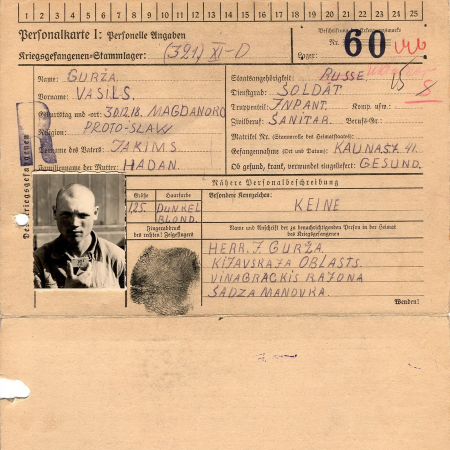 1 2 3 4 5 6 7 8 9 10 11 12 13 14 15 16 17 18 19 20 21 22 23 24 25
Personalkarte I: Personelle Angaben
Kriegsgefangenen-Stammlager: (391) XI-D
Beschriftung der Erkennungsmarke
Nr. 60
Lager:
Des Kriegsgefangenen
Name: GURŽA
Vorname: VASILS.
Geburtstag und -ort: 30.12.18. MAGDANORO
Religion: PROTO-SLAW
Vorname des Vaters: JAKIMS
Familienname der Mutter: HADAN.
Staatsangehörigkeit: RUSSE
Dienstgrad: SOLDĀT
Truppenteil: INPANT. Komp. usw.:
Zivilberuf: SANITAR. Berufs-Gr.:
Matrikel Nr. (Stammrolle des Heimatstaates):
Gefangennahme (Ort und Datum): KAUNAS
Ob gesund, krank, verwundet eingeliefert: GESUND.
Nähere Personalbeschreibung
Größe Haarfarbe
DUNKEL
BLOND.
Besondere Kennzeichen:
KEINE
Fingerabdruck
des rechten! Zeigefingers
Name und Anschrift der zu benachrichtigenden Person in der Heimat
des Kriegsgefangenen
HERR. J. GURŽA.
KIJAVSKAJA OBLASTS.
VINAGRACKIS RAJONA
SADZA MANOVKA.
Wenden!